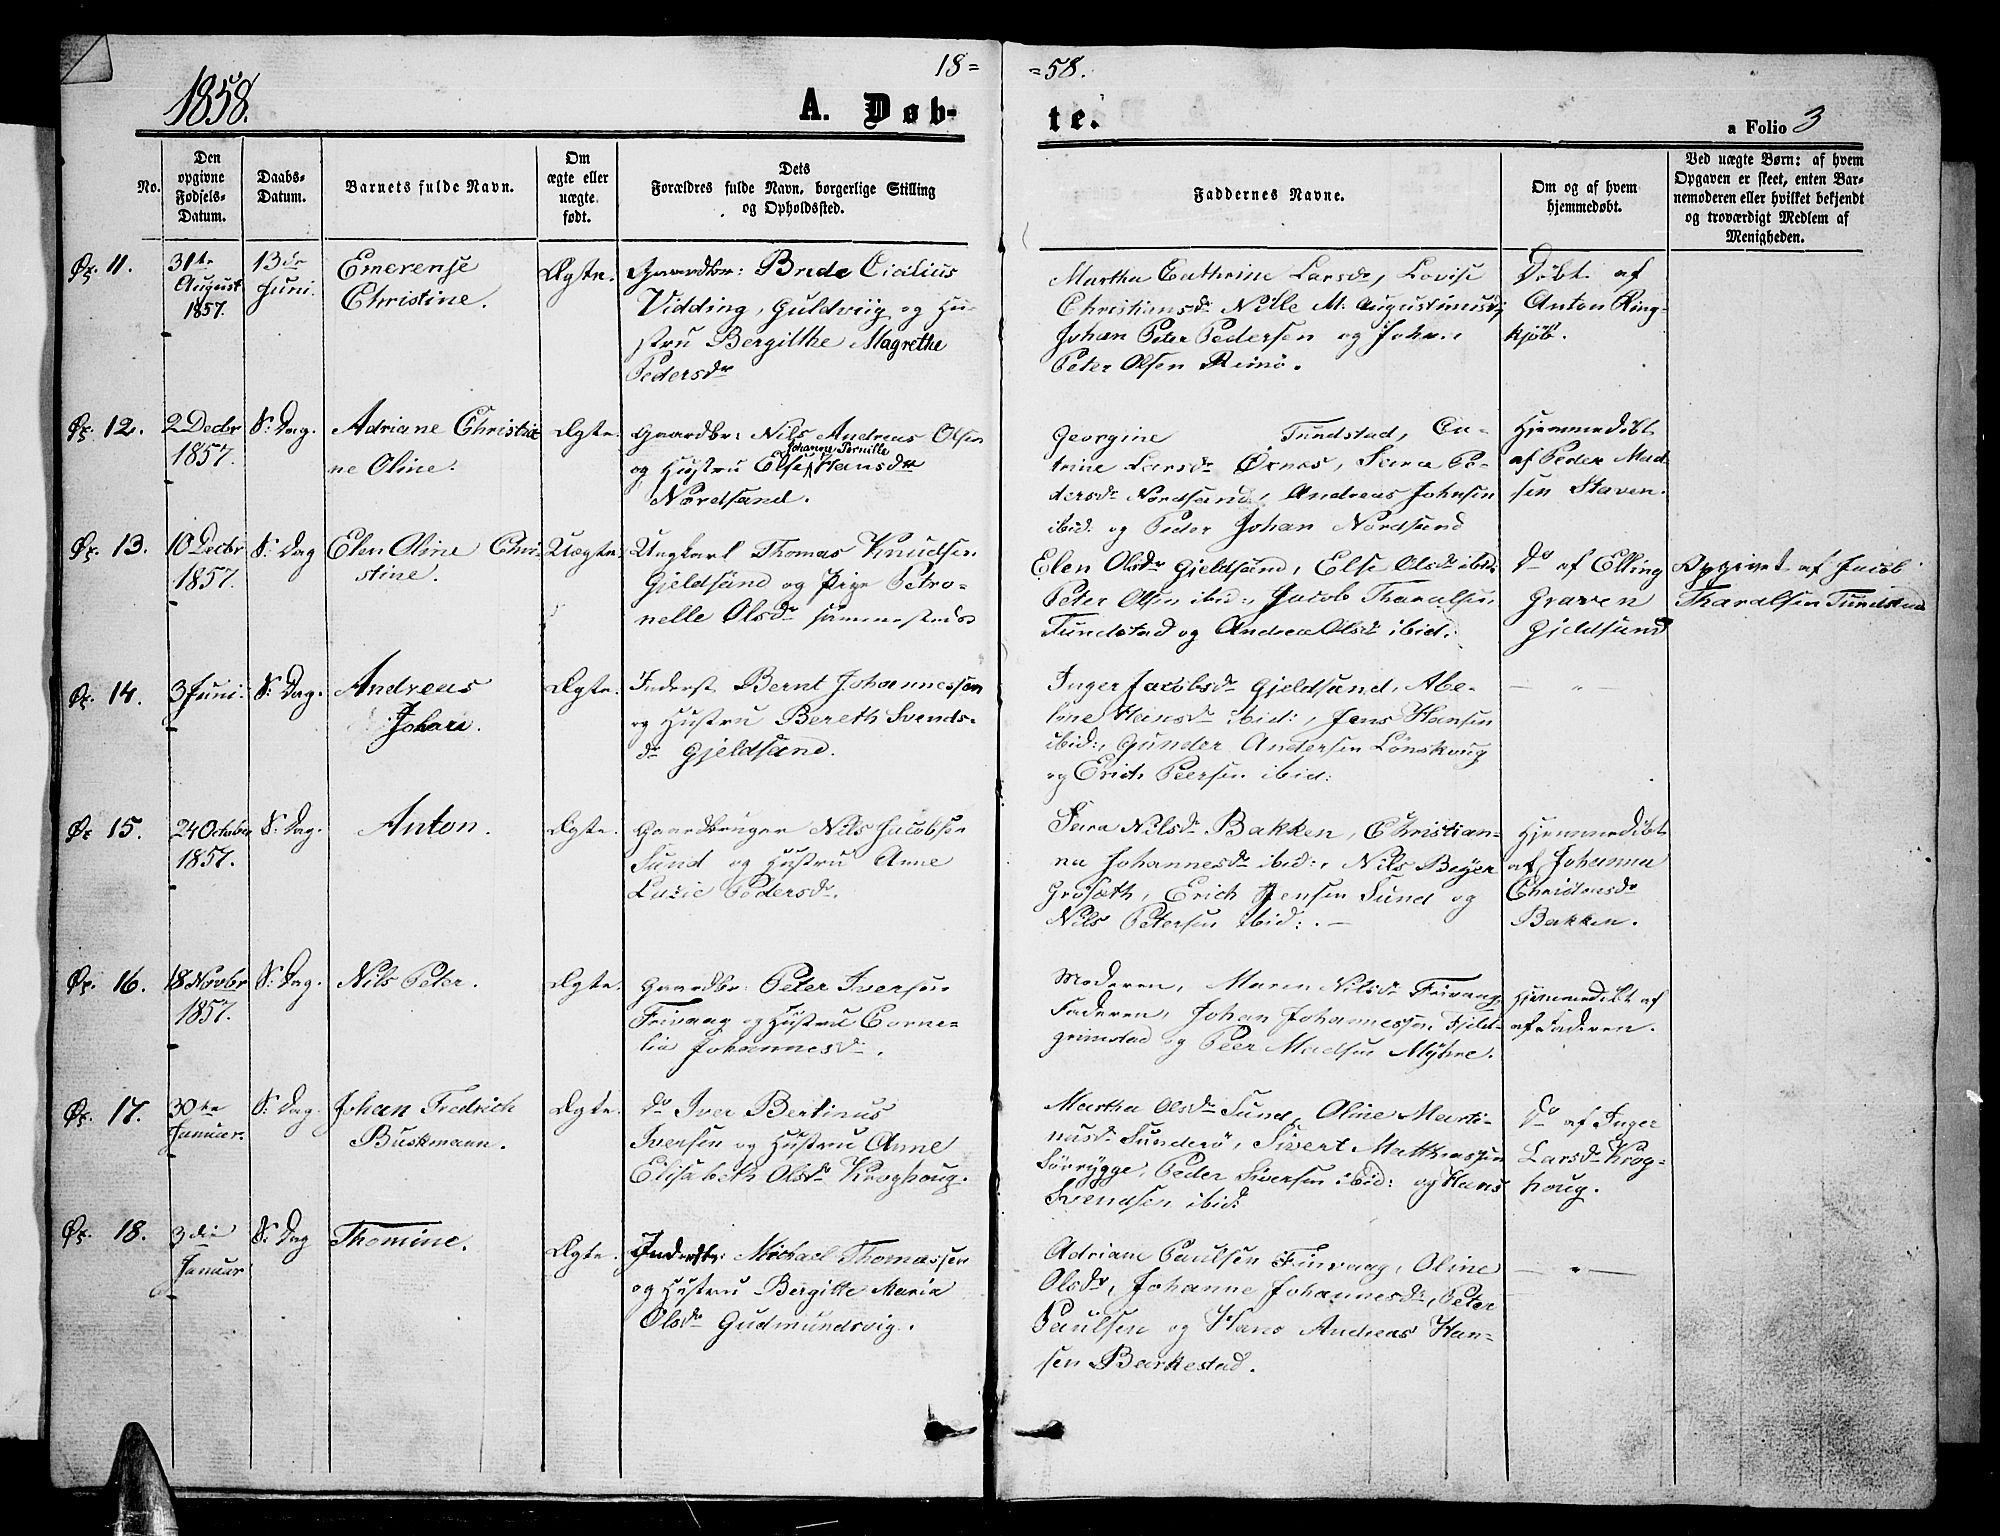 18= =58.
1858.
A. Døb-
te.
a Folio 3
No.
Den
opgivne
Fødsels-
Datum.
Daabs-
Datum.
Barnets fulde Navn.
Om
ægte eller
uægte
født.
Dets
Forældres fulde Navn, borgerlige Stilling
og Opholdssted.
Faddernes Navne.
Om og af hvem
hjemmedøbt.
Ved uægte Børn: af hvem
Opgaven er skeet, enten Bar-
nemoderen eller hvilket bekjendt
og troværdigt Medlem af
Menigheden.
Øx. 11.
31te
August
1857.
13de
Juni.
Emerense
Christine.
Ægte.
Gaardbr: Brede Cicilius
Vidding, Guldviig og Hu-
stru Bergithe Magrethe
Pedersdr
Martha Cathrine Larsdr, Lovise
Christiansdr Nille M. Augustinusdr
Johan Peter Pedersen og Joh.
Peter Olsen Remø.
Døbt af
Anton Ring-
kjøb.
Øx. 12.
2 Decbr
1857.
S: Dag.
Adriane Christia
ne Oline.
Ægte.
Gaardbr: Nils Andreas Olsen
Johanna Pernille
og Hustru Else Hansdr
Nordsand.
Georgine Tundstad, Ca-
trine Larsdr Ørnæs, Sara Pe-
dersdr Nordsand, Andreas Johnsen
ibid: og Peder Johan Nordsund
Hjemmedøbt
af Peder Mad
sen Staven.
Øx. 13.
10 Decbr
1857.
S: Dag
Elen Oline Chri-
stine.
Uægte.
Ungkarl Thomas Knudsen
Gjeldsund og Pige Petro-
nelle Olsdr sammesteds
Elen Olsdr Gjeldsund, Else Olsdr ibid:
Peter Olsen ibid:, Jacob Tharalsen
Tundstad og Andrea Olsdr ibid:
Do af Elling
Graven
Gjeldsund
Opgivet af Jacob
Tharalsen Tundstad
Øx. 14.
3 Juni.
S: Dag.
Andreas
Johan.
Ægte.
Inderst Bernt Johannessen
og Hustru Bereth Svends-
dr Gjeldsund.
Inger Jacobsdr Gjeldsund, Abe-
lone Heinsdr ibid:, Jens Hansen
ibid:, Gunder Andersen Lönskoug
og Erich Peersen ibid:
— " —
Øx 15.
24 October
1857.
S: Dag.
Anton.
Ægte.
Gaardbruger Nils Jacobsen
Sund og Hustru Anne
Lucie Pedersdr.
Sara Nilsdr Bakken, Christian-
na Johannesdr ibid:, Nils Beyer
Grosæth, Erich Jensen Sund og
Nils Petersen ibid: . —
Hjemmedøbt
af Johanna
Christensdr
Bakken.
Øx. 16.
18 Novbr
1857.
S: Dag.
Nils Peter.
Ægte.
Gaardbr: Peter Iversen
Frivaag og Hustru Corne-
lia Johannesdr.
Moderen, Maren Nilsdr Frivaag,
Faderen, Johan Johannessen Fjeld-
grimstad og Peer Madsen Myhre.
Hjemmedøbt af
af Faderen.
Øx. 17.
30te
Januar.
S: Dag.
Johan Fredrich
Buschmann.
Ægte.
Do Iver Bertinus
Iversen og Hustru Anne
Elisabeth Olsdr Kroghoug.
Martha Olsdr Sund, Oline Marti-
nusdr Sunderö, Sivert Mathiassen
Sörrygge, Peder Siversen ibid: og Hans
Svendsen ibid:
Do af Inger
Larsdr Krog-
houg.
Øx. 18.
3die
Januar
S: Dag
Thomine.
Ægte.
Inderstbr: Michael Thomassen
og Hustru Bergitte Maria
Olsdr Gudmundsvig.
Adriam Paulsen Finvaag, Oline
Olsdr, Johanne Johannesdr, Peter
Paulsen og Hans Andreas Han-
sen Barkestad.
— " —